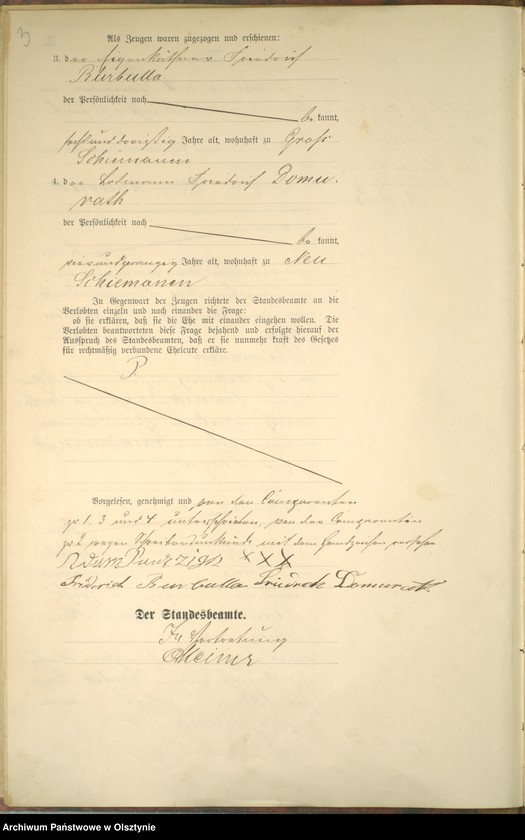 Als Zeugen waren zugezogen und erschienen:
3. der Eigenkäthner Friedrich
Burbulla
der Persönlichkeit nach
be kannt,
sechsunddreißig Jahre alt, wohnhaft zu Groß
Schiemanen
4. der Losmann Friedrich Domu-
rath
der Persönlichkeit nach
be kannt,
vierundzwanzig Jahre alt, wohnhaft zu Neu
Schiemanen
In Gegenwart der Zeugen richtete der Standesbeamte an die
Verlobten einzeln und nach einander die Frage:
ob sie erklären, daß sie die Ehe mit einander eingehen wollen. Die
Verlobten beantworteten diese Frage bejahend und erfolgte hierauf der
Ausspruch des Standesbeamten, daß er sie nunmehr kraft des Gesetzes
für rechtmäßig verbundene Eheleute erkläre.
Vorgelesen, genehmigt und von den Comparenten
zu 1, 3 und 4 unterschrieben, von der Comparentin
zu 2 wegen Schreibensunkunde mit dem Handzeichen versehen
Adam XXX
Friderich Burbulla Friedrich Domurath
Der Standesbeamte.
In Vertretung
Archiwum Państwowe w Olsztynie